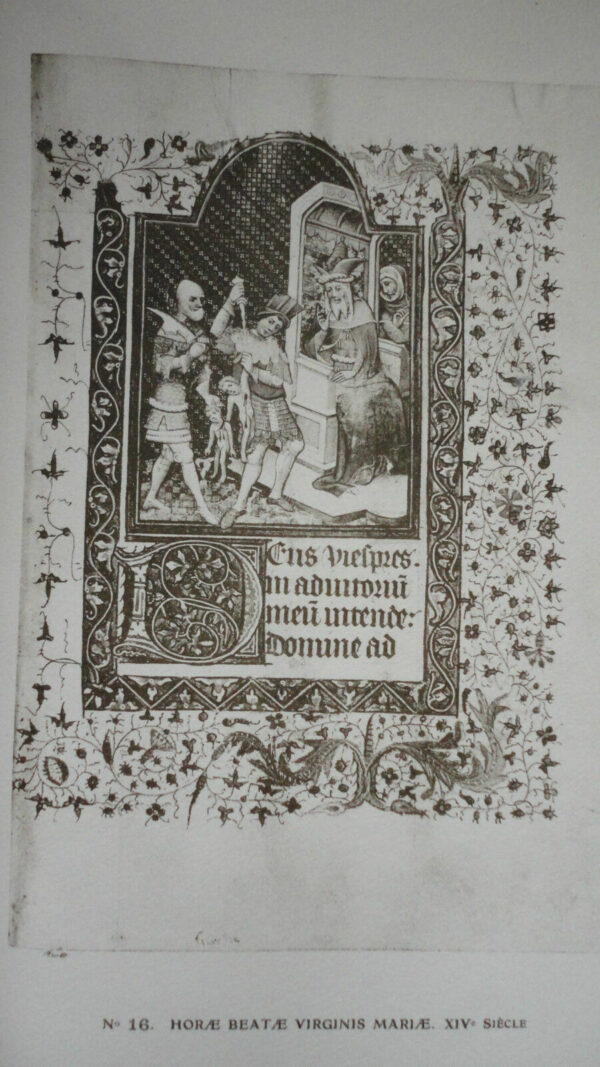 Deus Viespres.
in adiutoriū
meū intende:
Domine ad
Nº 16. HORÆ BEATÆ VIRGINIS MARIÆ. XIVᵉ SIÈCLE